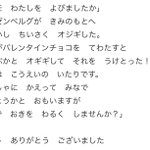 わたしを　よびましたか」
ゼンベルグが　きみのもとへ
し　ちいさく　オジギした。
バレンタインチョコを　てわたすと
かと　オギギして　それを　うけとった！
は　こうえいの　いたりです。
ゃに　かえって　みなで
とうかと　おもいますが
で　おきを　わるく　しませんか？」
ありがとう　ございました